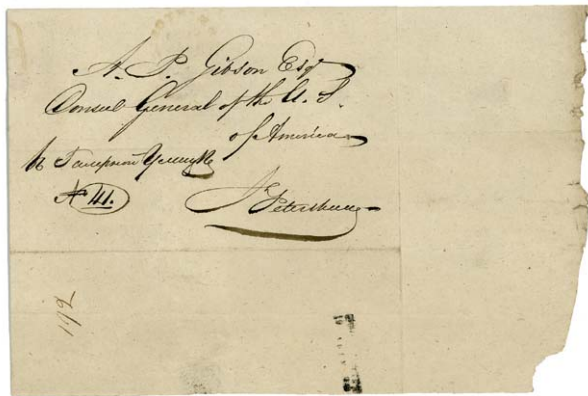 A. P. Gibson Esqr
Consul General of the U. S.
of America
№ 41.
St Petersburg